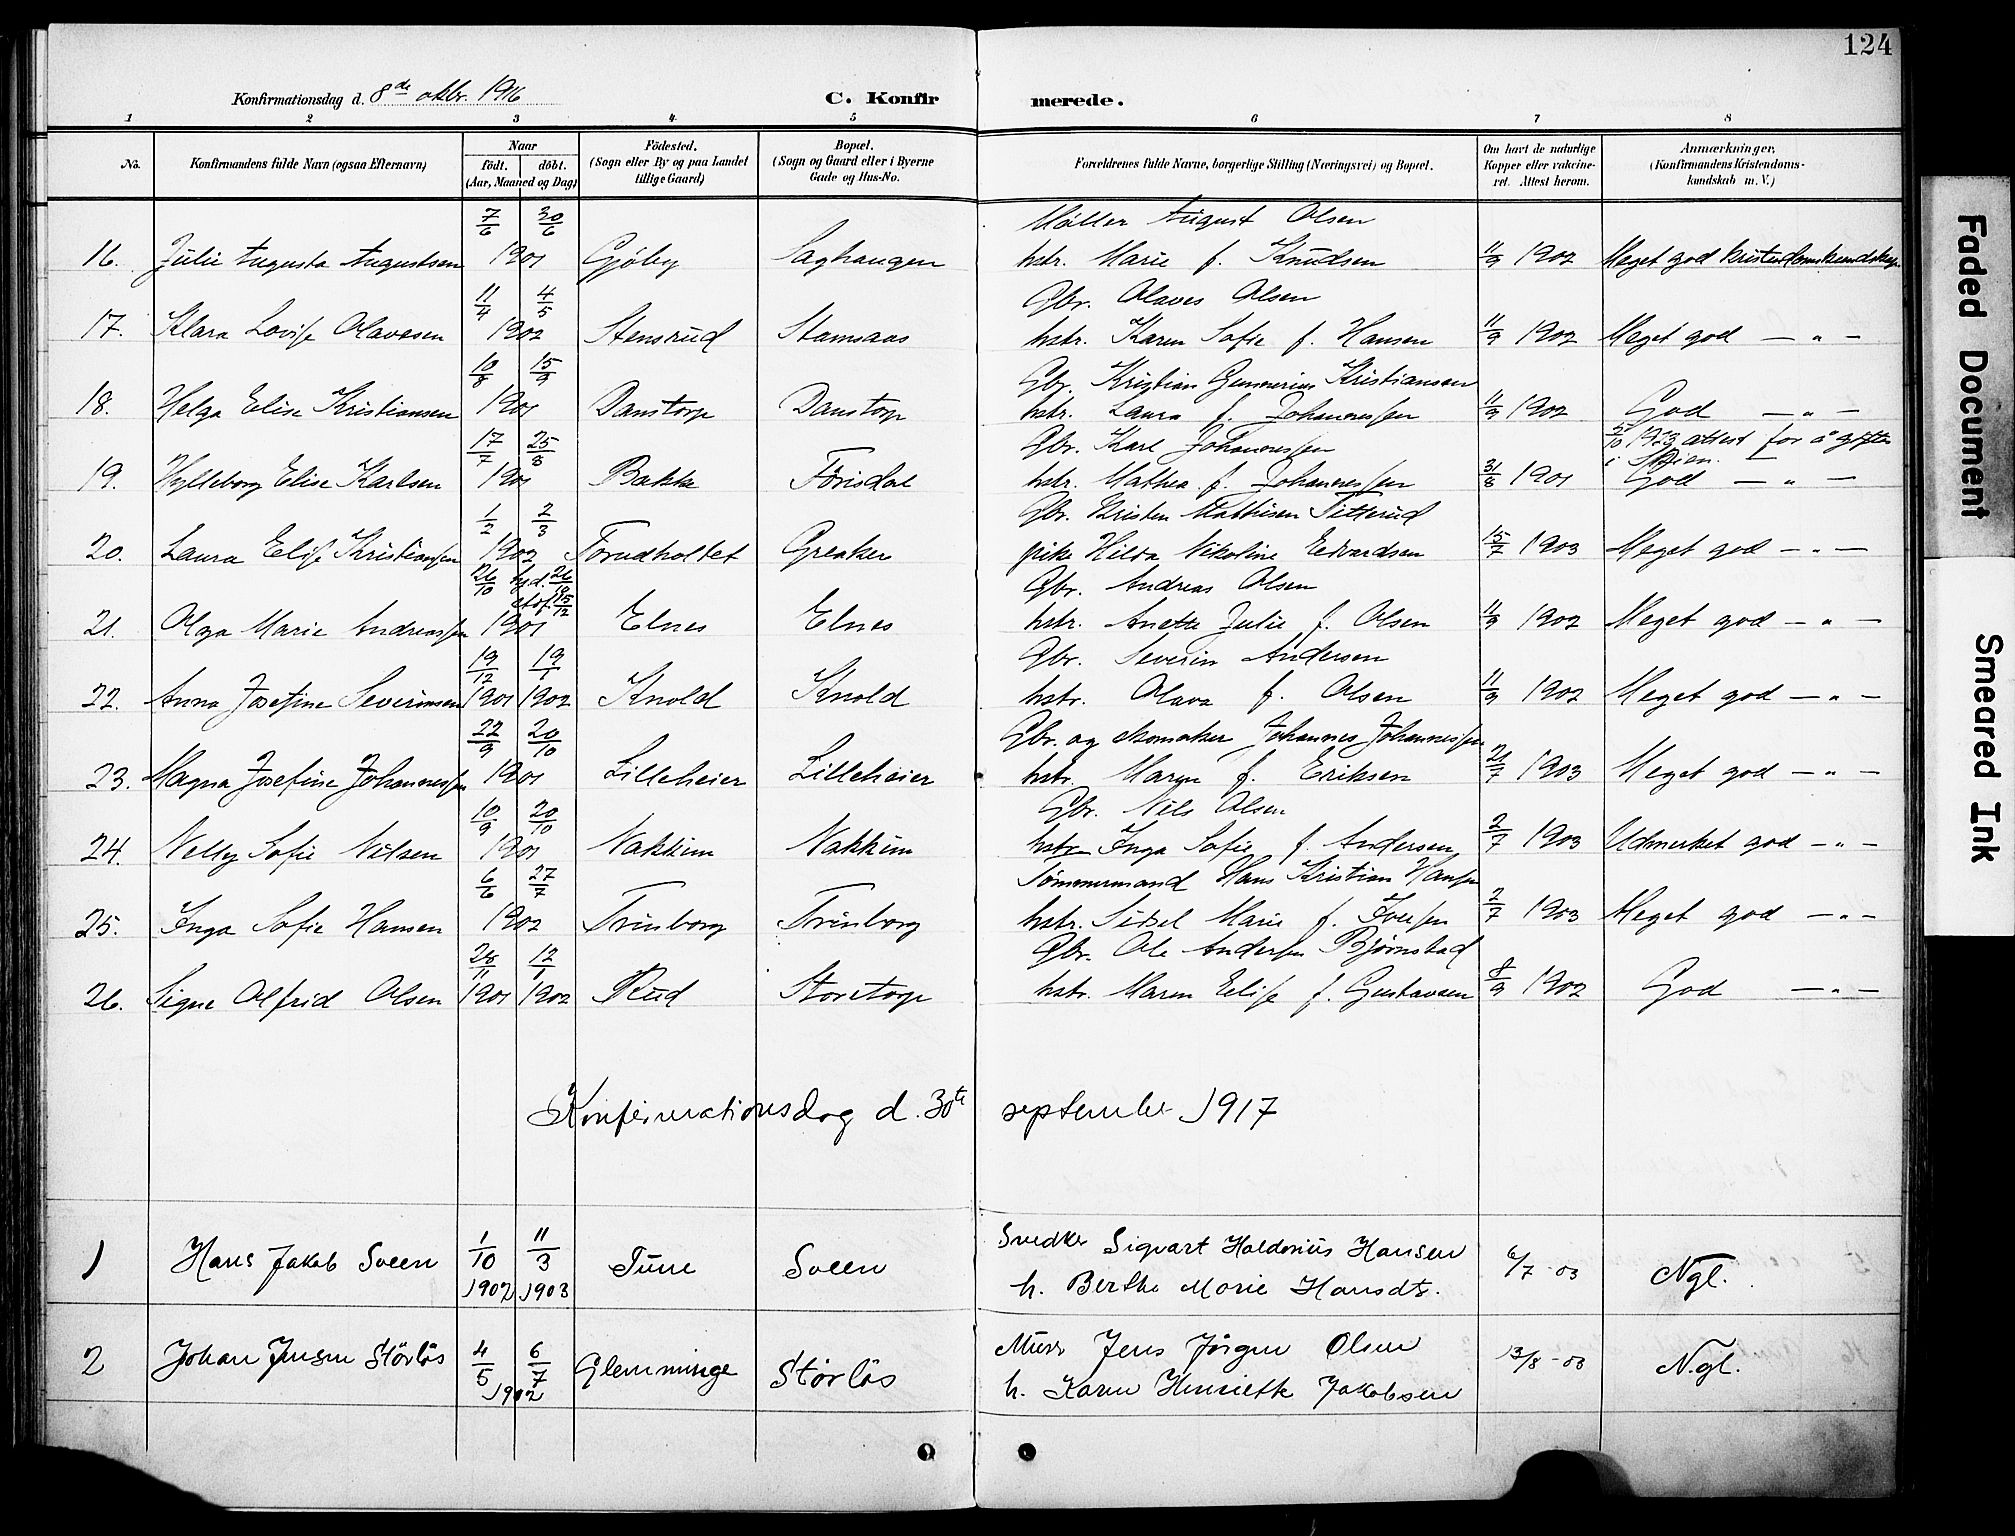 124
Konfirmationsdag d. 8de oktbr. 1916 C. Konfirmerede.
1 2 3 4 5 6 7 8
No. Konfirmandens fulde Navn (ogsaa Efternavn) Naar født. døbt. (Aar, Maaned og Dag) Födested. (Sogn eller By og paa Landet tillige Gaard) Bopæl. (Sogn og Gaard eller i Byerne Gade og Hus-No. Forældrenes fulde Navne, borgerlige Stilling (Næringsvei) og Bopæl. Om havt de naturlige Kopper eller vakcineret. Attest herom. Anmærkninger, (Konfirmandens Kristendomskundskab m. V.)
7/6 30/6 Møller August Olsen
16. Julie Augusta Augustsen 1901 Gjøby Saghaugen hstr. Marie f. Knudsen 11/9 1902 Meget god kristendomskundskap
11/4 4/5 Gbr. Olaves Olsen
17. Klara Lovise Olavesen 1902 Stensrud Stamsaas hstr. Karen Sofie f. Hansen 11/9 1902 Meget god — " —
10/8 15/9 Gbr. Kristian Gunnerius Kristiansen
18. Helga Elise Kristiansen 1901 Danstorp Danstorp hstr. Laura f. Johannessen 11/9 1902 God — " —
17/7 25/8 Gbr. Karl Johannessen 5/10 1923 attest for å gifte i Skien.
19. Hylleborg Elise Karlsen 1901 Bakke Torisdal hstr. Mathea f. Johannessen 31/8 1901 God — " —
1/2 2/3 Gbr. Kristen Mathisen Titterud
20. Laura Elise Kristiansen 1902 Torudholtet Greaker pike Hilda Nikoline Edvardsen 15/7 1903 Meget god — " —
26/10 hjd. 26/10 stdf. 15/12 Gbr. Andreas Olsen
21. Olga Marie Andreassen 1901 Elnes Elnes hstr. Anette Julie f. Olsen 11/9 1902 Meget god — " —
19/12 19/1 Gbr. Severin Andersen
22. Anna Josefine Severinsen 1901 1902 Knold Knold hstr. Olava f. Olsen 11/9 1902 Meget god — " —
22/9 20/10 Gbr. og skomaker Johannes Johannessen
23. Magna Josefine Johannessen 1901 Lilleheier Lilleheier hstr. Maren f. Eriksen 21/7 1903 Meget god — " —
10/9 20/10 Gbr. Nils Olsen
24. Nelly Sofie Nilsen 1901 Nakkim Nakkim hstr. Inga Sofie f. Andersen 2/7 1903 Udmerket god — " —
6/6 27/7 Tømmermand Hans Kristian Hansen
25. Inga Sofie Hansen 1902 Trinborg Trinborg hstr. Sidsel Marie f. Iversen 2/7 1903 Meget god — " —
28/11 12/1 Gbr. Ole Andersen Bjørnstad
26. Signe Alfrid Olsen 1901 1902 Rud Storetorp hstr. Maren Elise f. Gustavsen 8/9 1902 God — " —
Konfirmationsdag d. 30te september 1917
1 Hans Jakob Sveen 1/10 1902 11/3 1903 Tune Sveen Snedker Sigvart Haldorius Hansen
h. Berthe Marie Hansdt. 6/7 -03 Ngl.
2 Johan Jensen Störlös 4/5 6/7 1902 Glemminge Störlös Murer Jens Jörgen Olsen
h. Karen Henriette Jakobsen 13/8 -03 N.gl.
Faded Document
Smeared Ink